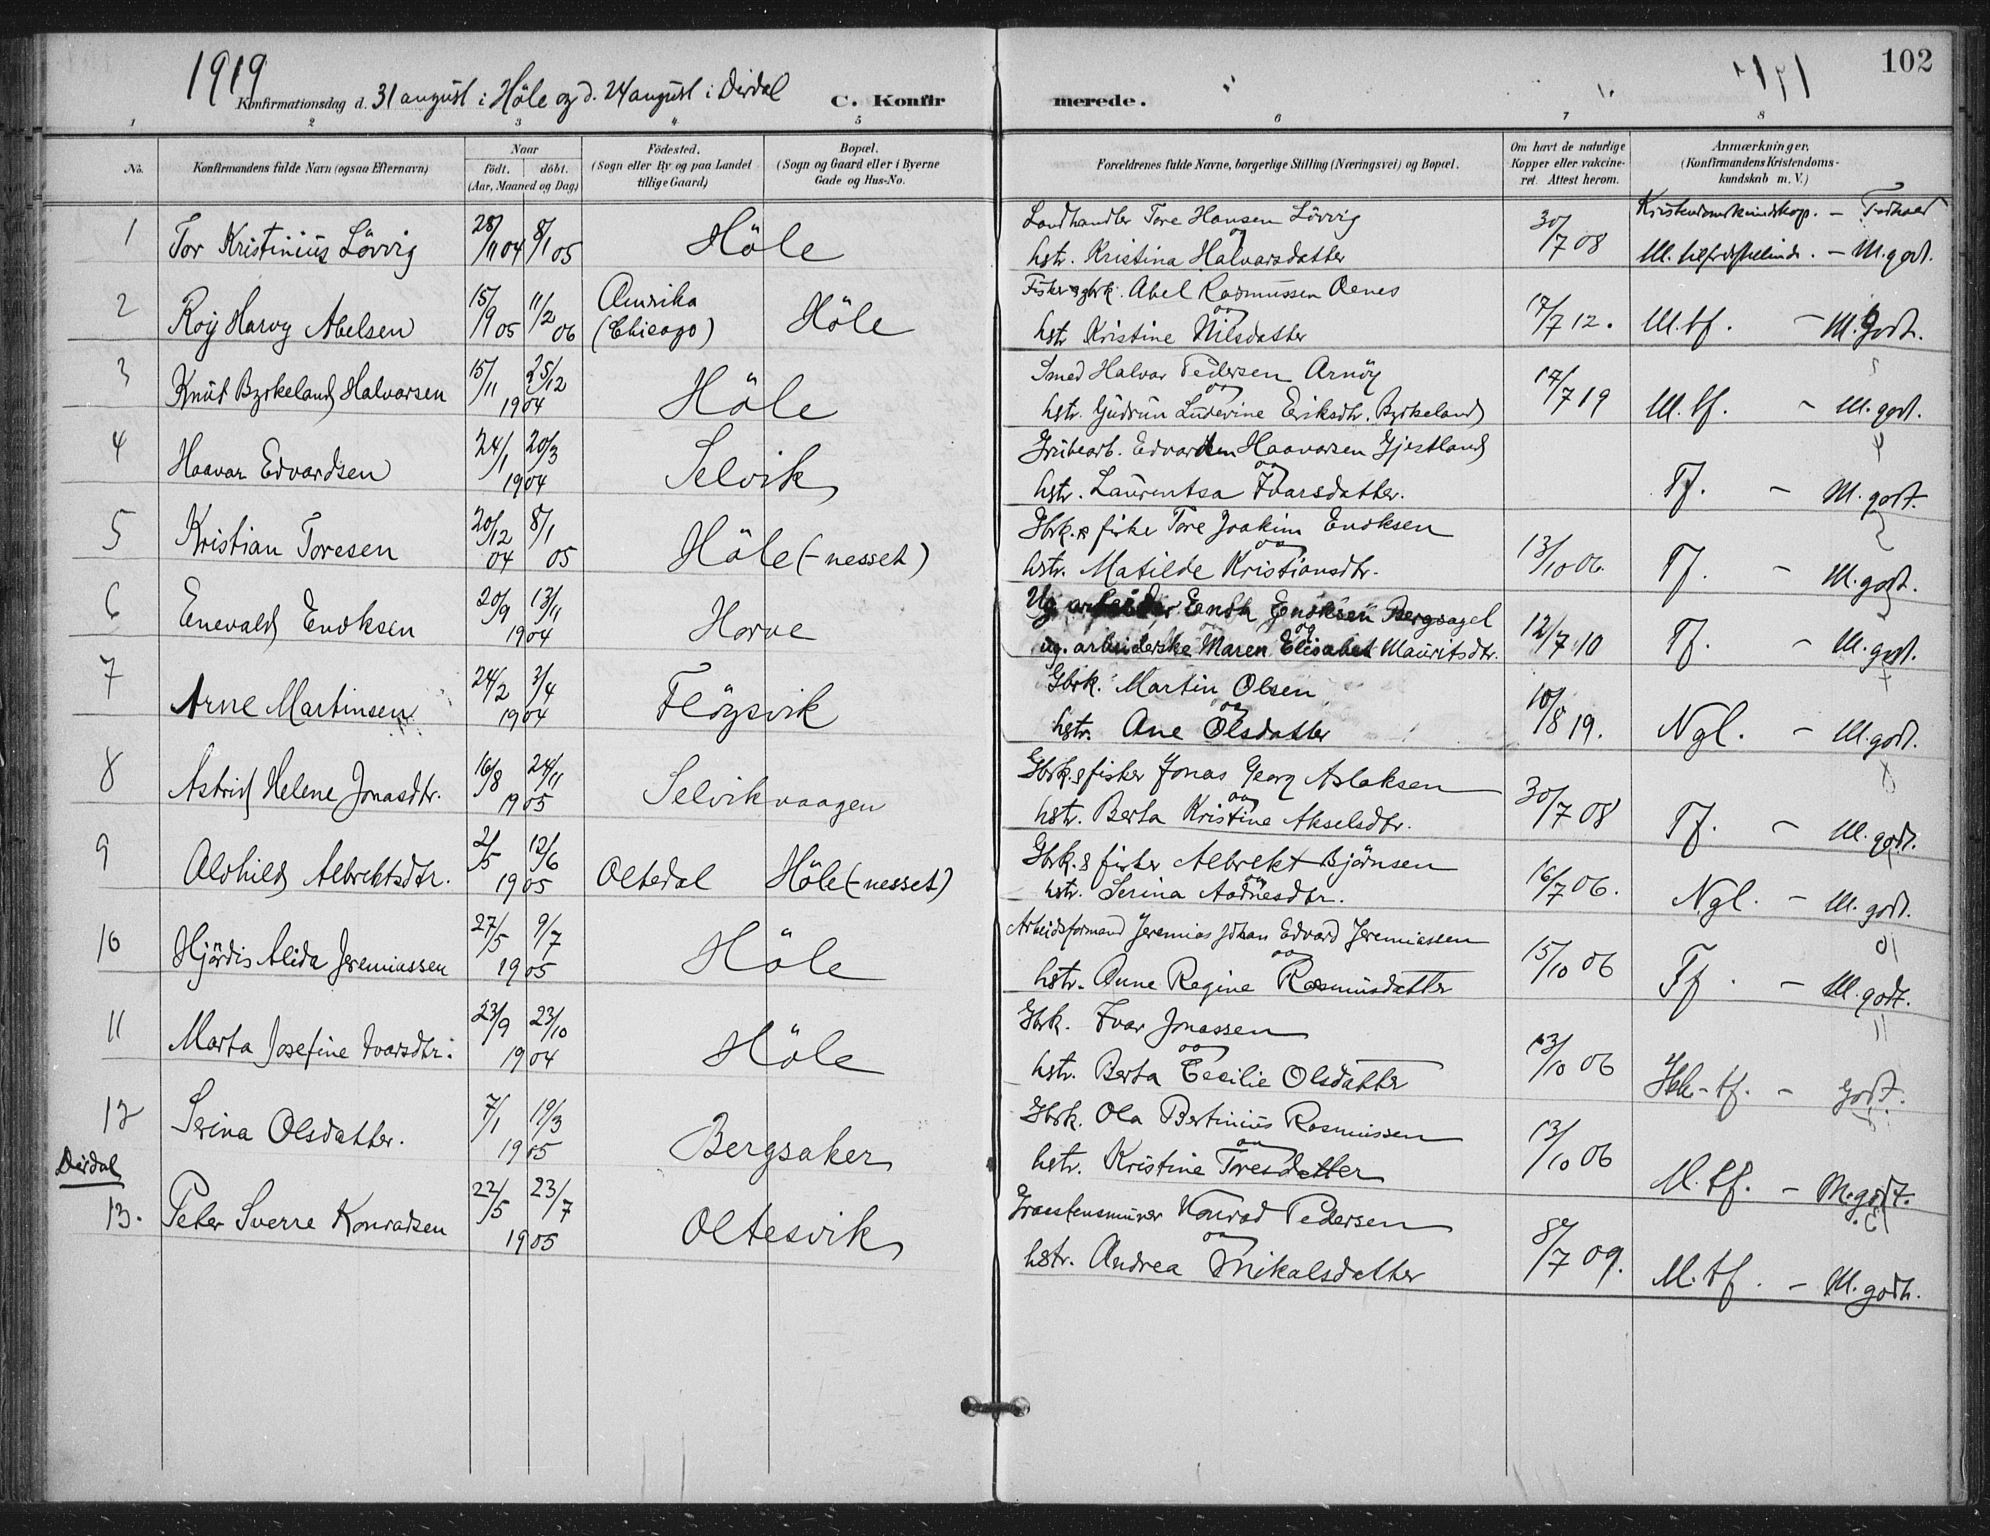 1919
102
Konfirmationsdag d. 31 august i Höle og d. 24 august i Dirdal
C. Konfirmerede.
1 2 3 4 5 6 7 8
No.
Konfirmandens fulde Navn (ogsaa Efternavn)
Naar
født. døbt.
(Aar, Maaned og Dag)
Fødested.
(Sogn eller By og paa Landet
tillige Gaard)
Bopæl.
(Sogn og Gaard eller i Byerne
Gade og Hus-No.
Forældrenes fulde Navne, borgerlige Stilling (Næringsvei) og Bopæl.
Om havt de naturlige
Kopper eller vakcine-
ret. Attest herom.
Anmærkninger.
(Konfirmandens Kristendoms-
kundskab m. V.)
Kristendomskundskap. — Forhold
1 Tor Kristinius Lövvig 28/11 04 8/1 05 Höle
Landhandler Tore Hansen Lövvig
og
hstr. Kristina Halvarsdatter 30/7 08 M. tilfredsstillende. — M. godt.
2 Roy Harvy Abelsen 15/9 05 11/2 06 Amerika (Chicago) Höle
Fisker & gbrk. Abel Rasmussen Oenes
og
hstr Kristine Nilsdatter 17/7 12. M. tf. — M. godt.
3 Knut Byrkeland Halvarsen 15/11 25/12 1904 Höle
Smed Halvar Pedersen Arnöy
og
hstr. Gudrun Ludevine Eriksdtr. Byrkeland 17/7 19 M. tf. — M. godt.
4 Haavar Edvardsen 24/1 20/3 1904 Selvik
Grubearb. Edvard Haavarsen Gjestland
og
hstr. Laurentsa Ivarsdatter. Tf. — M. godt.
5 Kristian Toresen 20/12 04 8/1 05 Höle (-nesset)
Gbrk. & fisker Tore Joakim Endksen
og
hstr. Matilde Kristiansdtr. 13/10 06. Tf. — M. godt.
6 Enevald Endksen 20/9 13/11 1904 Horve
Ug. arbeider Endk Endksen Bergsagel
og
ug. arbeiderske Maren Elisabet Mauritsdtr. 12/7 10 Tf. — M. godt.
7 Arne Martinsen 24/2 3/4 1904 Flöysvik
Gbrk. Martin Olsen
og
hstr. Ane Olsdatter 10/8 19. Ngl. — M. godt.
8 Astrid Helene Jonasdtr. 16/8 24/11 1905 Selvikvaagen
Gbrk. & fisker Jonas Georg Aslaksen
og
hstr. Berta Kristine Akselsdtr. 30/7 08 Tf. — M. godt.
9 Alvhild Albrektsdtr. 2/5 12/6 1905 Oltedal Höle (-nesset)
Gbrk. & fisker Albrekt Björnsen
og
hstr. Serina Aadnesdtr. 16/7 06. Ngl. — M. godt.
10 Hjördis Alida Jeremiassen 27/5 9/7 1905 Höle
Arbeidsformand Jeremias Johan Edvard Jeremiassen
og
hstr. Anne Regine Rasmusdatter 15/10 06 Tf. — M. godt.
11 Marta Josefine Ivarsdtr. 23/9 23/10 1904 Höle
Gbrk. Ivar Jonassen
og
hstr. Berta Cecilie Olsdatter 13/10 06 tf. — godt.
12 Serina Olsdatter. 7/1 19/3 1905 Bergsaker
Gbrk. Ola Bertinius Rasmussen
og
hstr. Kristine Toresdatter 13/10 06 M. tf. — M. godt.
Dirdal
13. Peter Sverre Konradsen 22/5 23/7 1905 Oltesvik
Graastensmurer Konrad Pedersen
og
hstr. Andrea Mikalsdatter 8/7 09. M. tf. — M. godt.